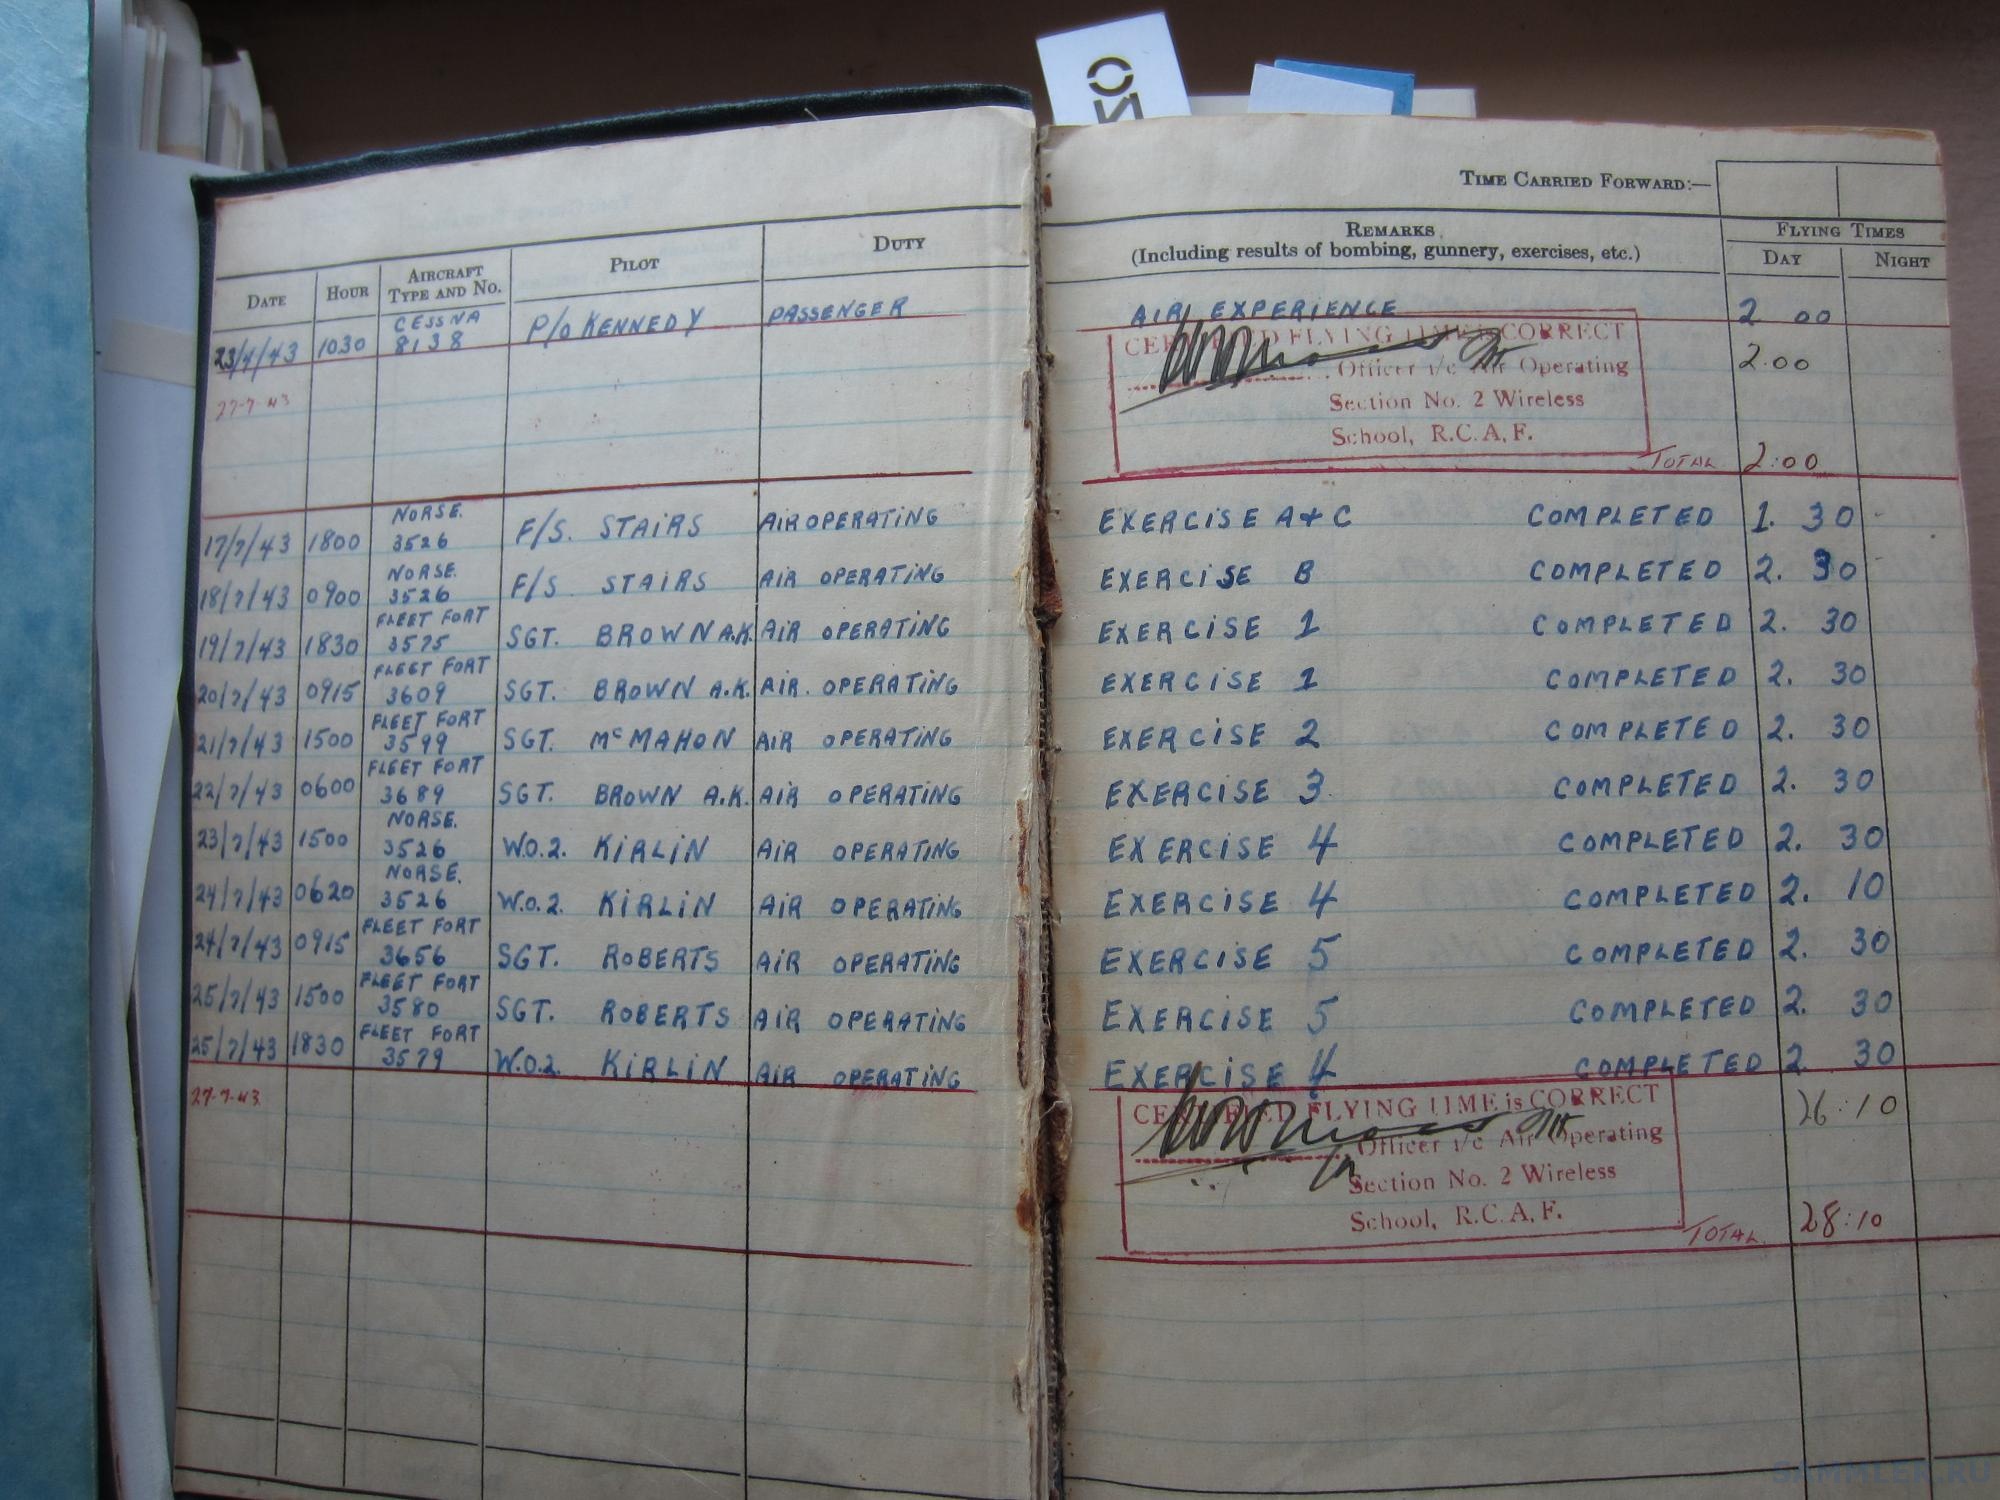 ON
TIME CARRIED FORWARD:—
DATE HOUR AIRCRAFT TYPE AND NO. PILOT DUTY REMARKS (Including results of bombing, gunnery, exercises, etc.) FLYING TIMES DAY NIGHT
23/4/43 1030 CESSNA 8138 P/O KENNEDY PASSENGER AIR EXPERIENCE 2 00
CERTIFIED FLYING TIME is CORRECT 2.00
Officer i/c Air Operating
27-7-43 Section No. 2 Wireless
School, R.C.A.F.
TOTAL 2:00
17/7/43 1800 NORSE. 3526 F/S. STAIRS AIR OPERATING EXERCISE A+C COMPLETED 1. 30
18/7/43 0900 NORSE. 3526 F/S STAIRS AIR OPERATING EXERCISE B COMPLETED 2. 30
19/7/43 1830 FLEET FORT 3575 SGT. BROWN A.K. AIR OPERATING EXERCISE 1 COMPLETED 2. 30
20/7/43 0915 FLEET FORT 3609 SGT. BROWN A.K. AIR. OPERATING EXERCISE 1 COMPLETED 2. 30
21/7/43 1500 FLEET FORT 3599 SGT. McMAHON AIR OPERATING EXERCISE 2 COMPLETED 2. 30
22/7/43 0600 FLEET FORT 3689 SGT. BROWN A.K. AIR OPERATING EXERCISE 3 COMPLETED 2. 30
23/7/43 1500 NORSE. 3526 W.O.2. KIRLIN AIR OPERATING EXERCISE 4 COMPLETED 2. 30
24/7/43 0620 NORSE. 3526 W.O.2. KIRLIN AIR OPERATING EXERCISE 4 COMPLETED 2. 10
24/7/43 0915 FLEET FORT 3656 SGT. ROBERTS AIR OPERATING EXERCISE 5 COMPLETED 2. 30
25/7/43 1500 FLEET FORT 3580 SGT. ROBERTS AIR OPERATING EXERCISE 5 COMPLETED 2. 30
25/7/43 1830 FLEET FORT 3579 W.O.2. KIRLIN AIR OPERATING EXERCISE 4 COMPLETED 2. 30
27-7-43 CERTIFIED FLYING TIME is CORRECT 26:10
Officer i/c Air Operating
Section No. 2 Wireless
School, R.C.A.F.
TOTAL 28:10
SAMMLER.RU